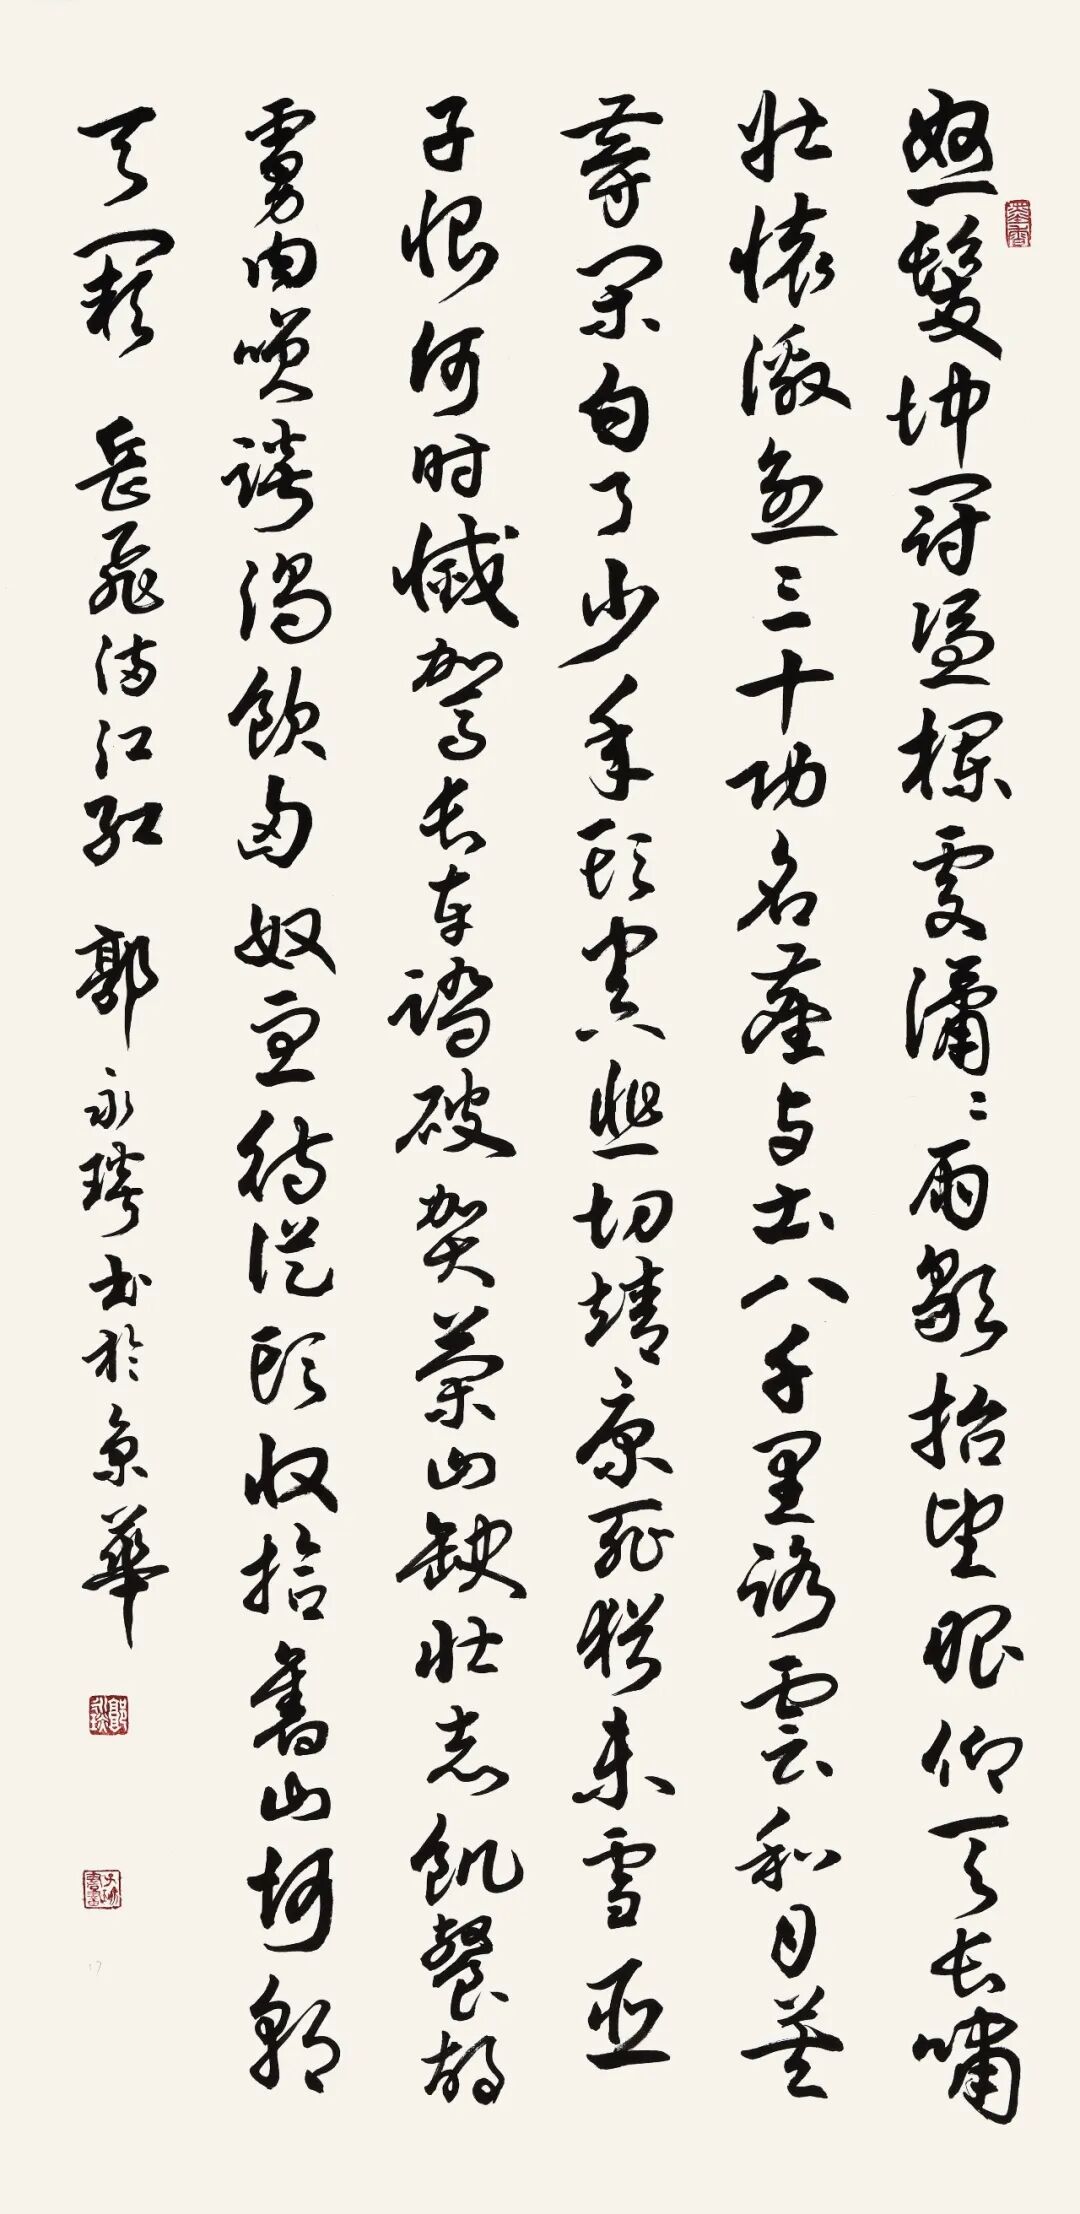 怒髮冲冠憑欄處瀟〻雨歇抬望眼仰天長嘯
壯懷激烈三十功名塵与土八千里路雲和月莫
等閑白了少年頭空悲切靖康恥猶未雪臣
子恨何时憾駕長車踏破賀蘭山缺壯志飢餐胡
虜肉笑談渴飲匈奴血待從頭收拾舊山河朝
天闕 岳飛滿江紅 郭永琰書於京華
郭永琰